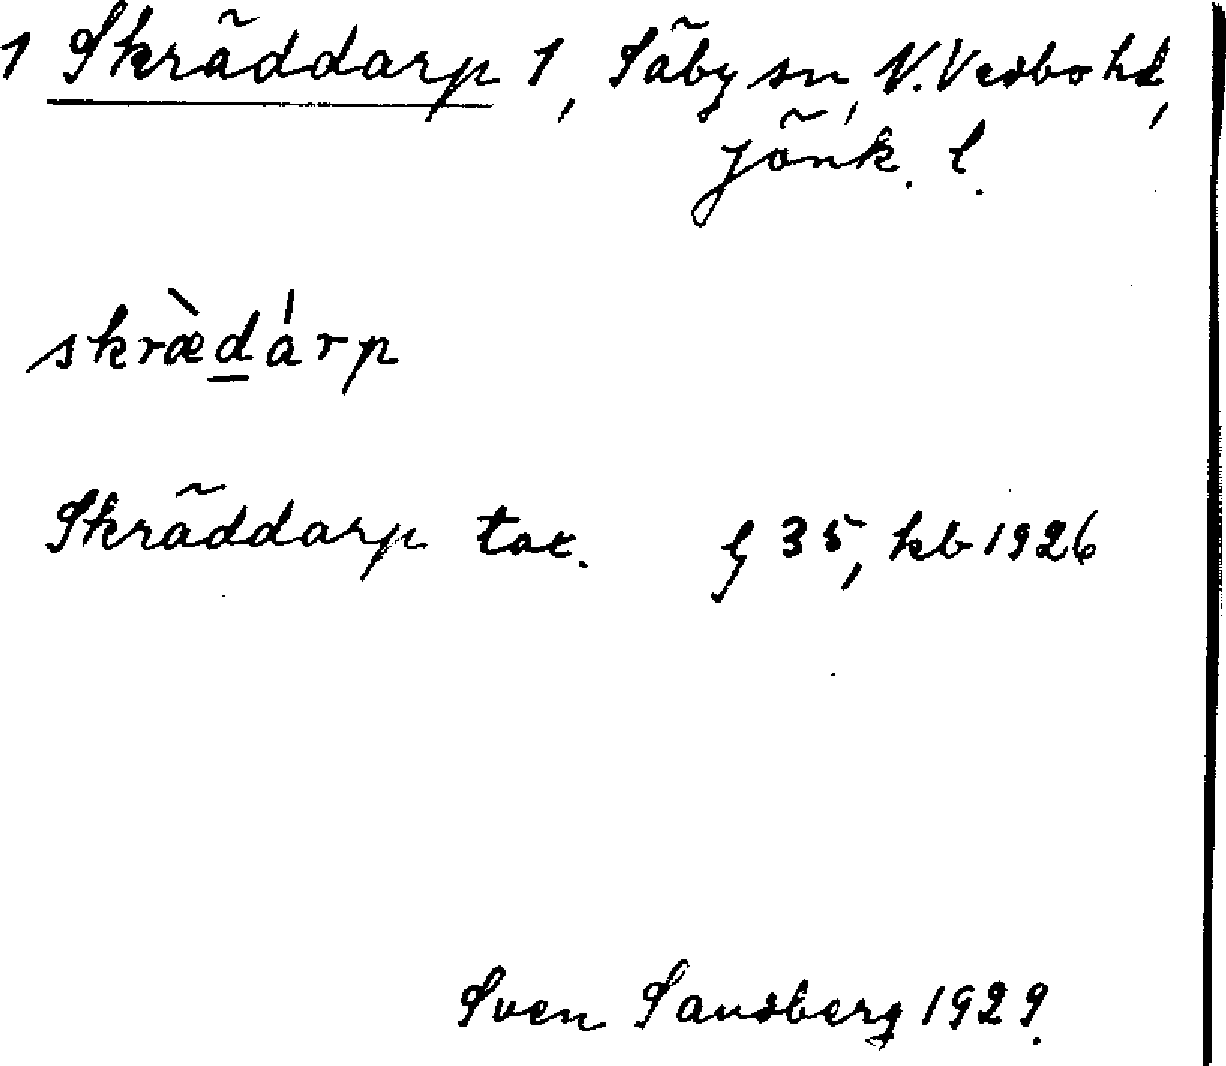 1 Skräddarp 1, Säby sn, N. Vedbo hd,
Jönk. l.
skræ̀dárp
Skräddarp tor. § 35, kb 1926
Sven Sandberg 1929.